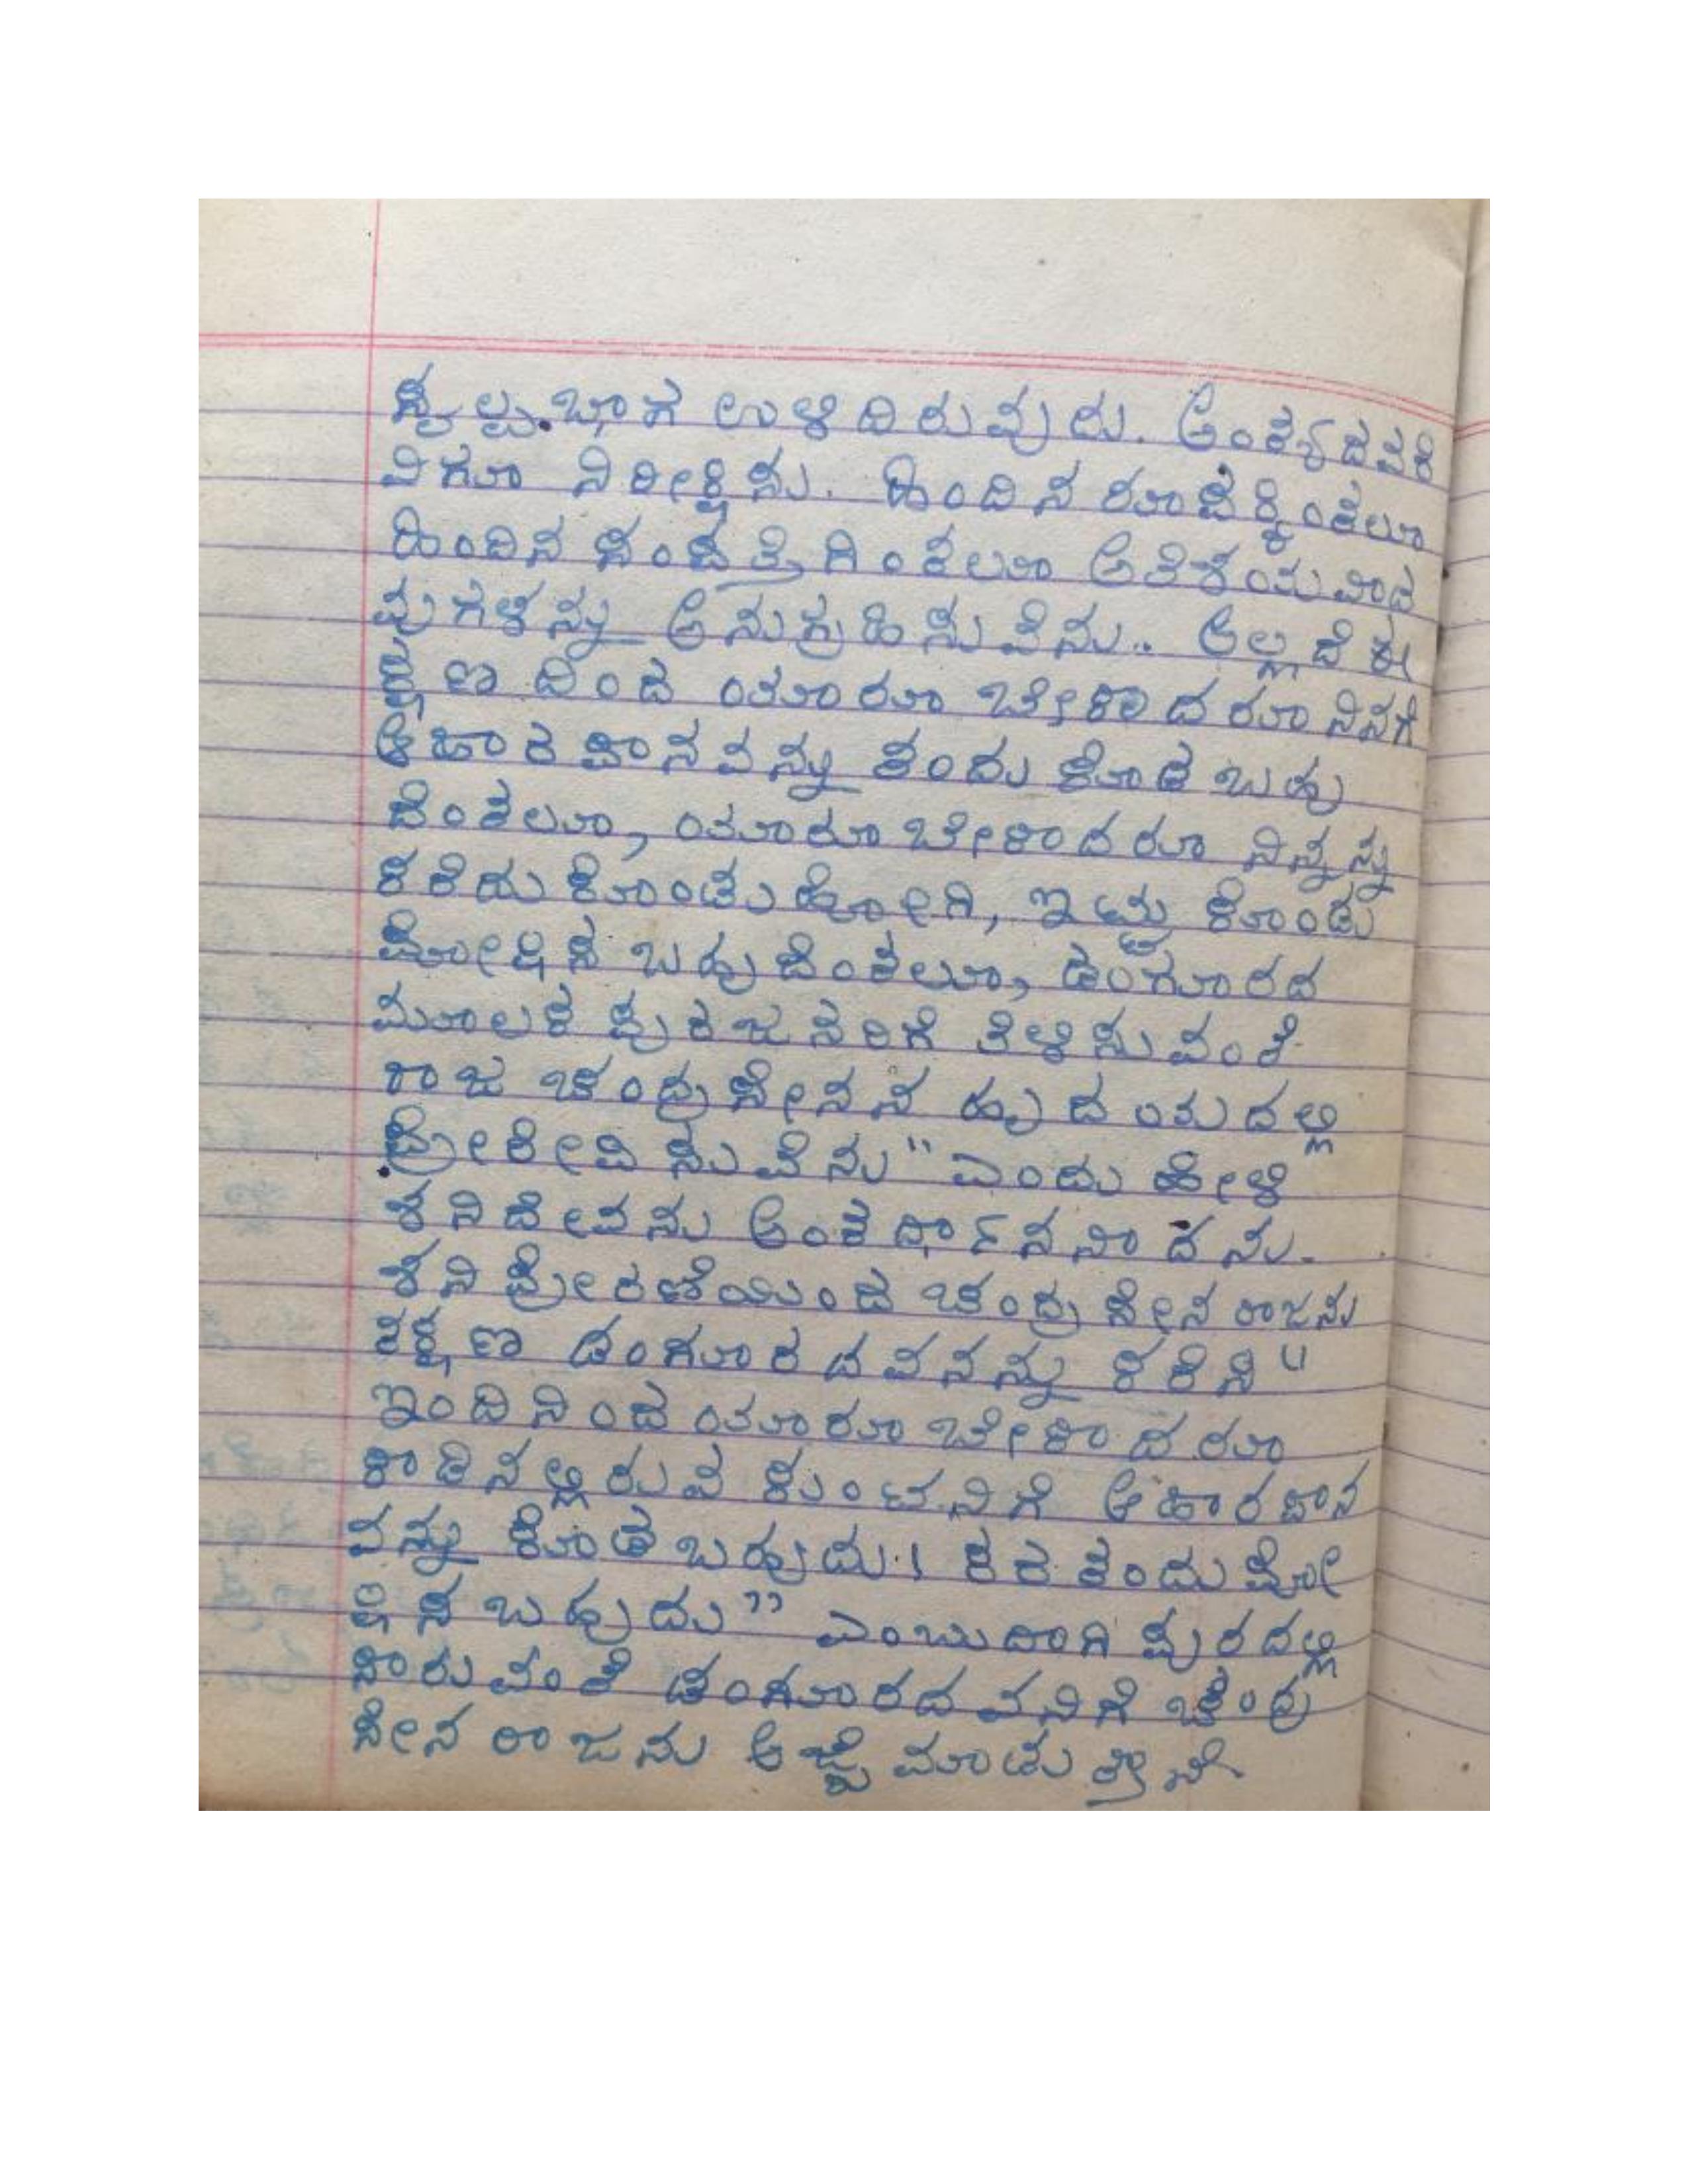 ಸ್ವಲ್ಪ ಭಾಗ ಉಳಿದಿರುವುದು. ಅಂತ್ಯದವರೆ
ವಿಗೂ ನಿರೀಕ್ಷಿಸು. ಹಿಂದಿನ ರೂಪಕ್ಕಿಂತಲೂ
ಹಿಂದಿನ ಸಂಪತ್ತಿಗಿಂತಲೂ ಅತಿಶಯವಾದ
ವುಗಳನ್ನು ಅನುಗ್ರಹಿಸುವೆನು.. ಅಲ್ಲದೆ ಈ
ಕ್ಷಣದಿಂದ ಯಾರೂ ಬೇಕಾದರೂ ನಿನಗೆ
ಆಹಾರಪಾನವನ್ನು ತಂದು ಕೊಡಬಹು
ದೆಂತಲೂ, ಯಾರೂ ಬೇಕಾದರೂ ನಿನ್ನನ್ನು
ಕರೆದು ಕೊಂಡು ಹೋಗಿ, ಇಟ್ಟು ಕೊಂಡು
ಪೋಷಿಸಬಹುದೆಂತಲೂ, ಡಂಗೂರದ
ಮೂಲಕ ಪುರಜನರಿಗೆ ತಿಳಿಸುವಂತೆ
ರಾಜ ಚಂದ್ರಸೇನನ ಹೃದಯದಲ್ಲಿ
ಪ್ರೇರೇಪಿಸುವೆನು" ಎಂದು ಹೇಳಿ
ಶನಿದೇವನು ಅಂತರ್ಧಾನನಾದನು.
ಶನಿ ಪ್ರೇರಣೆಯಿಂದ ಚಂದ್ರಸೇನ ರಾಜನು
ತಕ್ಷಣ ಡಂಗೂರದವನನ್ನು ಕರೆಸಿ "
ಇಂದಿನಿಂದ ಯಾರೂ ಬೇಕಾದರೂ
ಕಾಡಿನಲ್ಲಿರುವ ಕುಂಟನಿಗೆ ಆಹಾರಪಾನ
ವನ್ನು ಕೊಡಬಹುದು. । ಕರತಂದು ಪೋ
ಷಿಸಬಹುದು" ಎಂಬುದಾಗಿ ಪುರದಲ್ಲಿ
ಸಾರುವಂತೆ ಡಂಗೂರದವನಿಗೆ ಚಂದ್ರ
ಸೇನ ರಾಜನು ಆಜ್ಞೆ ಮಾಡುತ್ತಾನೆ